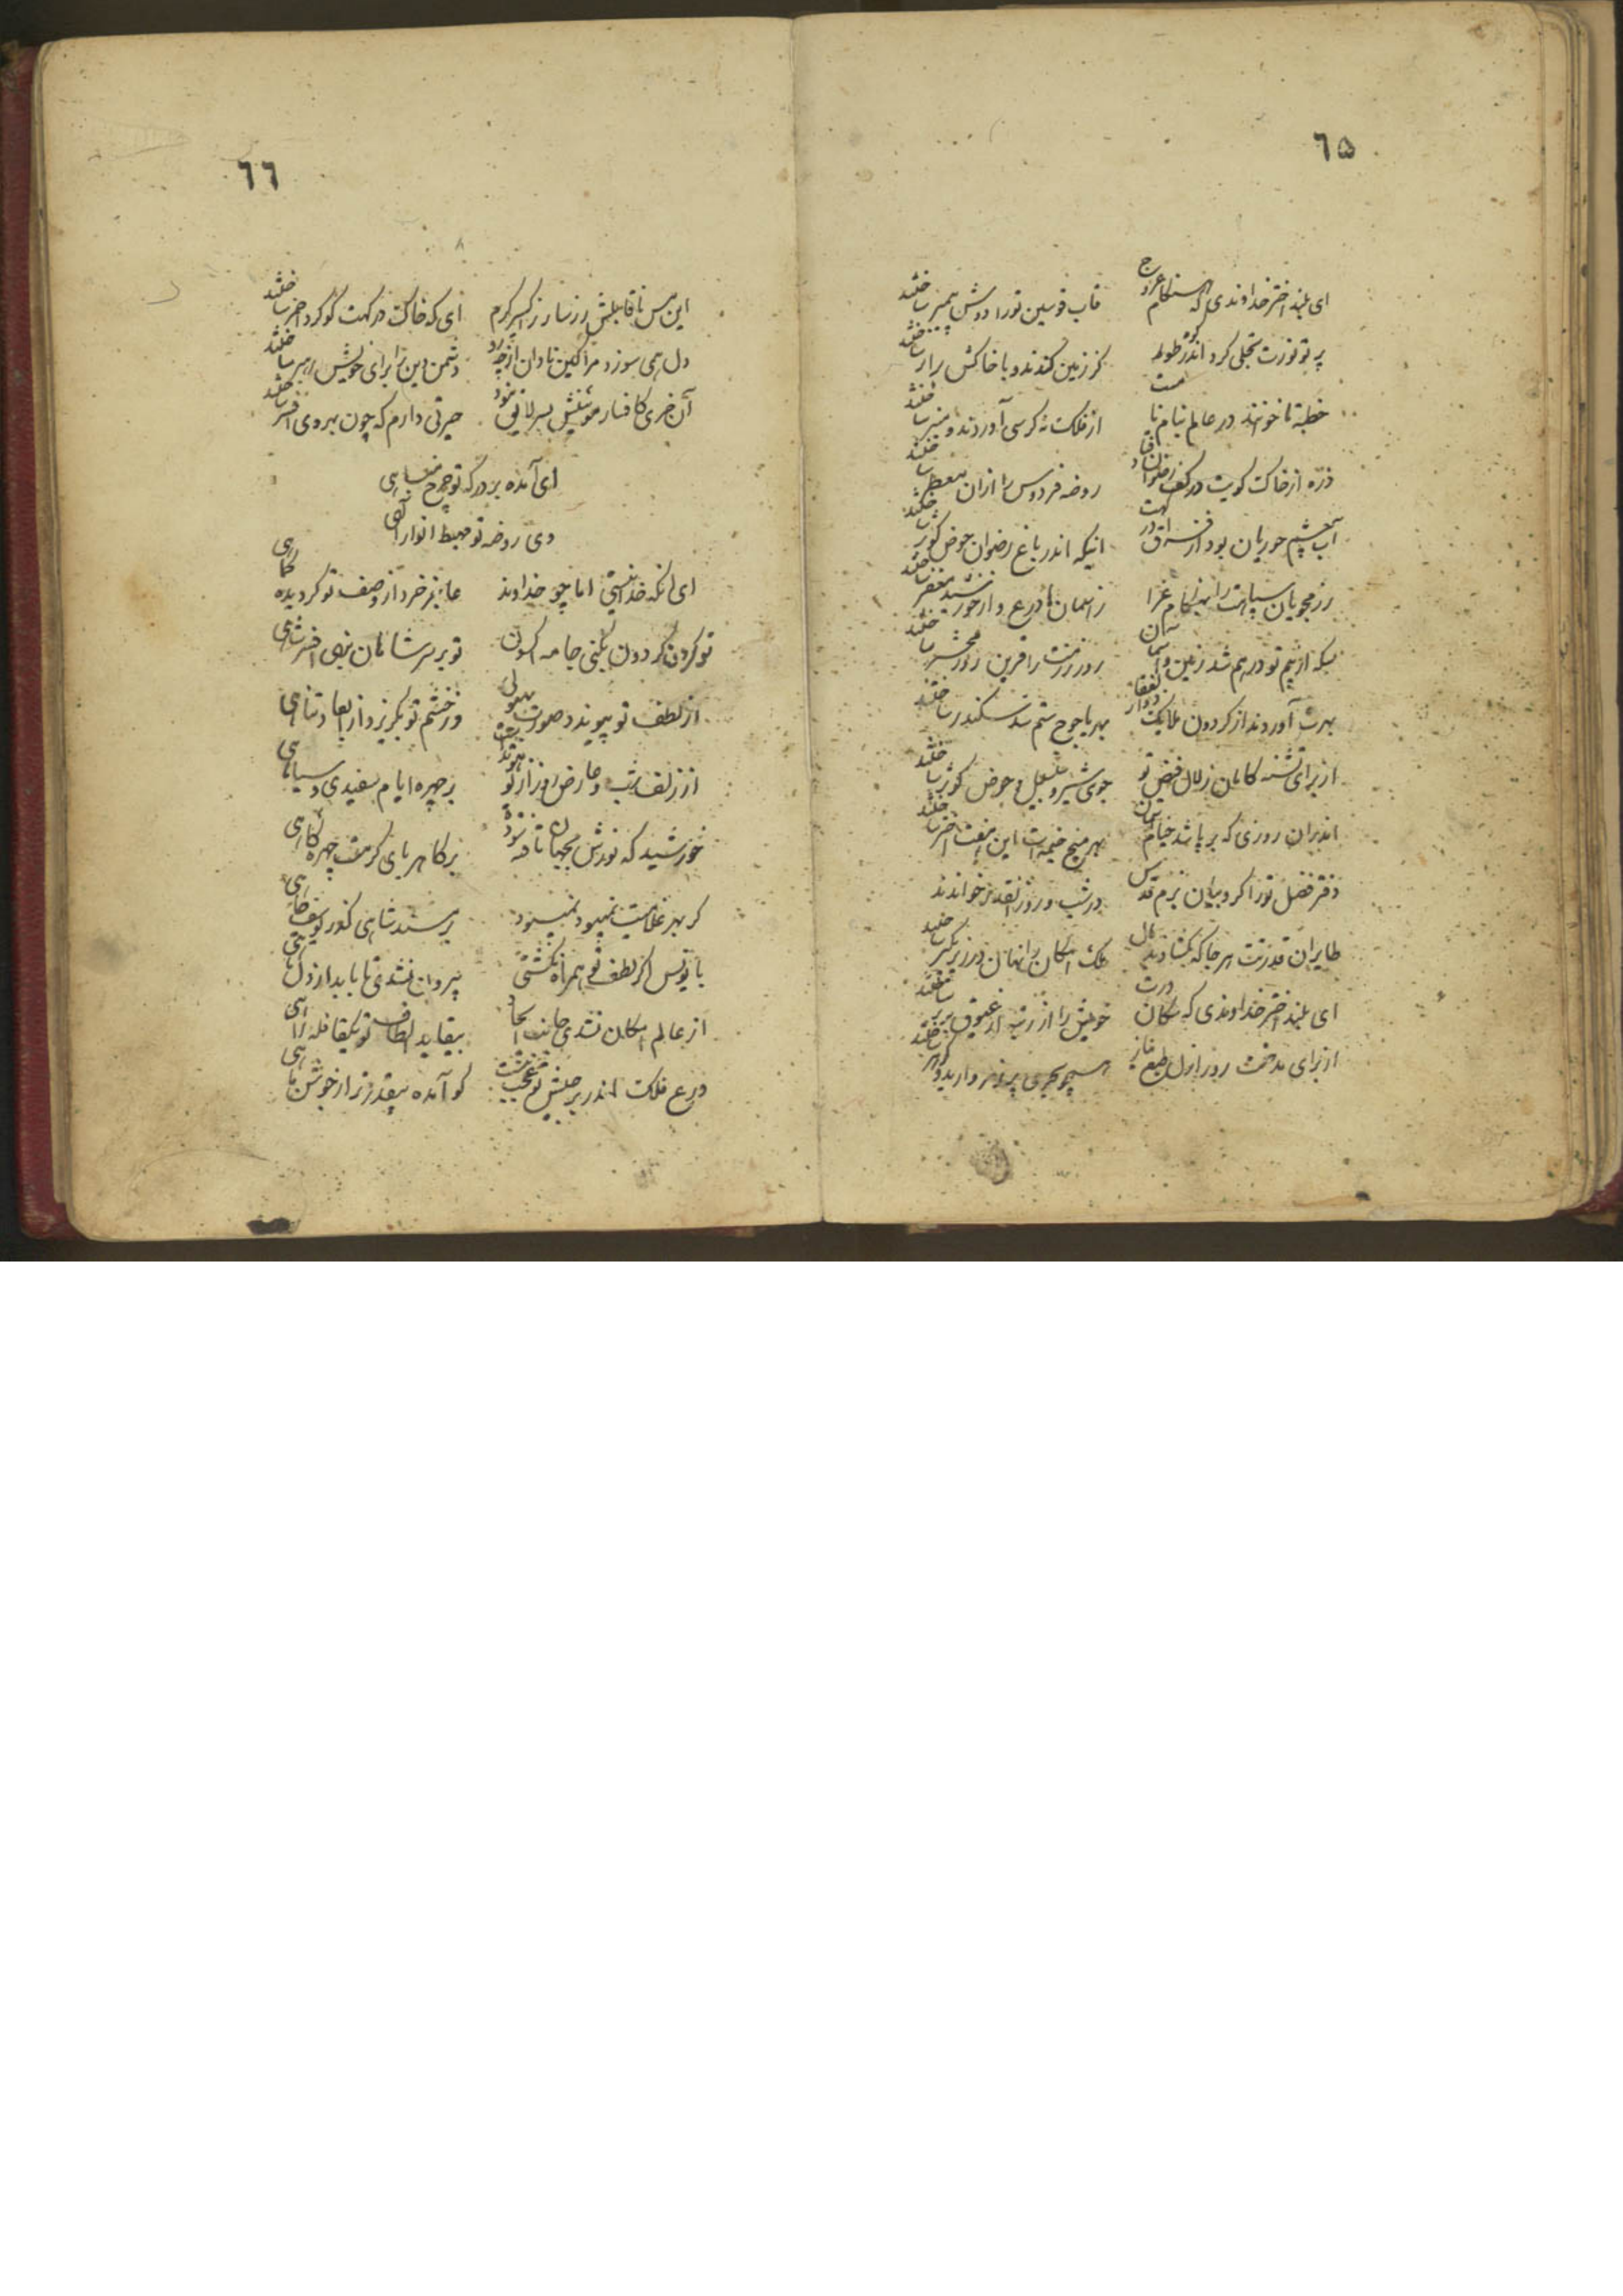 ٦۵
ای بلند اختر خداوندی که هنگام عروج قاب قوسین تو را دوش پیمبر ساختند
پرتو نورت تجلی کرد اندر کوه طور کز زمین کندند و با خاکش برابر ساختند
خطبه تا خوانند در عالم بنام نامیت از فلک نه کرسی آوردند و منبر ساختند
ذره از خاک کویت در کف رضوان فتاد روضه فردوس را از آن معطر ساختند
آب چشم حوریان بود از فراق درگهت اینکه اندر باغ رضوان حوض کوثر ساختند
رزمجویان سپاهت را بهنگام غزا ز آسمان ها درع و از خورشید مغفر ساختند
بسکه از بیم تو درهم شد زمین و آسمان روز رزمت را قرین روز محشر ساختند
بهرت آوردند از گردون ملایک ذوالفقار بهر یاجوج ستم سد سکندر ساختند
از برای تشنه کامان زلال فیض تو جوی شیر و سلسبیل و حوض کوثر ساختند
اندران روزی که برپا شد خیام بهر میخ خیمه ات این هفت اختر ساختند
دفتر فضل تو را کروبیان بزم قدس در شب و روز آنقدر خواندند
طایران قدرتت هر جا که بگشادند بال ملک امکان را نهان در زیر یک پر ساختند
ای بلند اختر خداوندی که سکان درت خویش را از رتبه از عیوق برتر ساختند
از برای مدحت روز ازل طبع همچو بحری پر ز مروارید و گوهر ساختند
٦٦
این مس ناقابلش زر ساز ز اکسیر کرم ای که خاک درگهت گوگرد احمر ساختند
دل همی سوزد مرا کاین نادان از چه رو دشمن دین را برای خویش رهبر ساختند
آن خری کافسار مویینش بسر لایق نبود حیرتی دارم که چون بهر وی افسر ساختند
ای آمده بر درگه تو چرخ مباهی
وی روضه تو مهبط انوار الهی
ای آنکه خدا نیستی اما چو خداوند عاجز خرد از وصف تو گردیده کماهی
تو گردن گردون بکنی جامه اکسون تو بر سر شاهان بنهی افسر شاهی
از لطف تو پیوندد صورت بهیولی ور خشم تو بگریزد از ابعاد تناهی
از زلف شب و عارض روز از تو بر چهره ایام سفیدی و سیاهی
خورشید که نورش بجهان تافته بر کاهربای کرمت چهره کاهی
گر بهر غلامیت نمیبود نمیبود بر مسند شاهی کنعان یوسف چاهی
با یونس اگر لطف تو همراه نگشتی بیرون نشدی تا بابد از دل ماهی
از عالم امکان نشدی جانب ایجاد بیقاید الطاف تو یکقافله راهی
درع فلک اندر بر جیش تو عجب نیست کو آمده بیقدرتر از جوشن ماهی